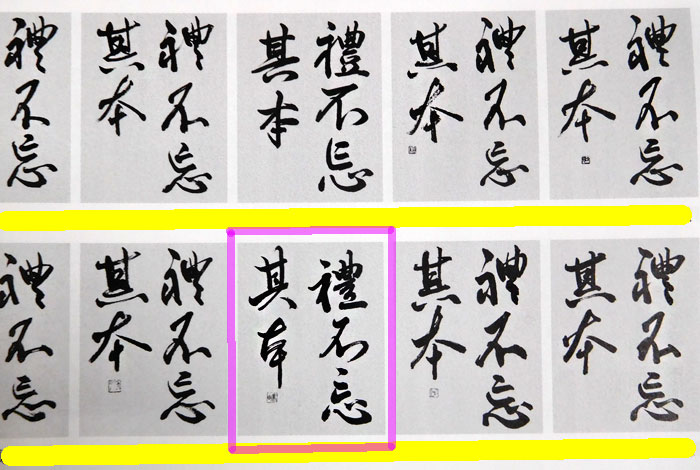 禮不忘
其本
禮不忘
其本
禮不忘
其本
禮不忘
其本
禮不忘
禮不忘
其本
禮不忘
其本
禮不忘
其本
禮不忘
其本
禮不忘